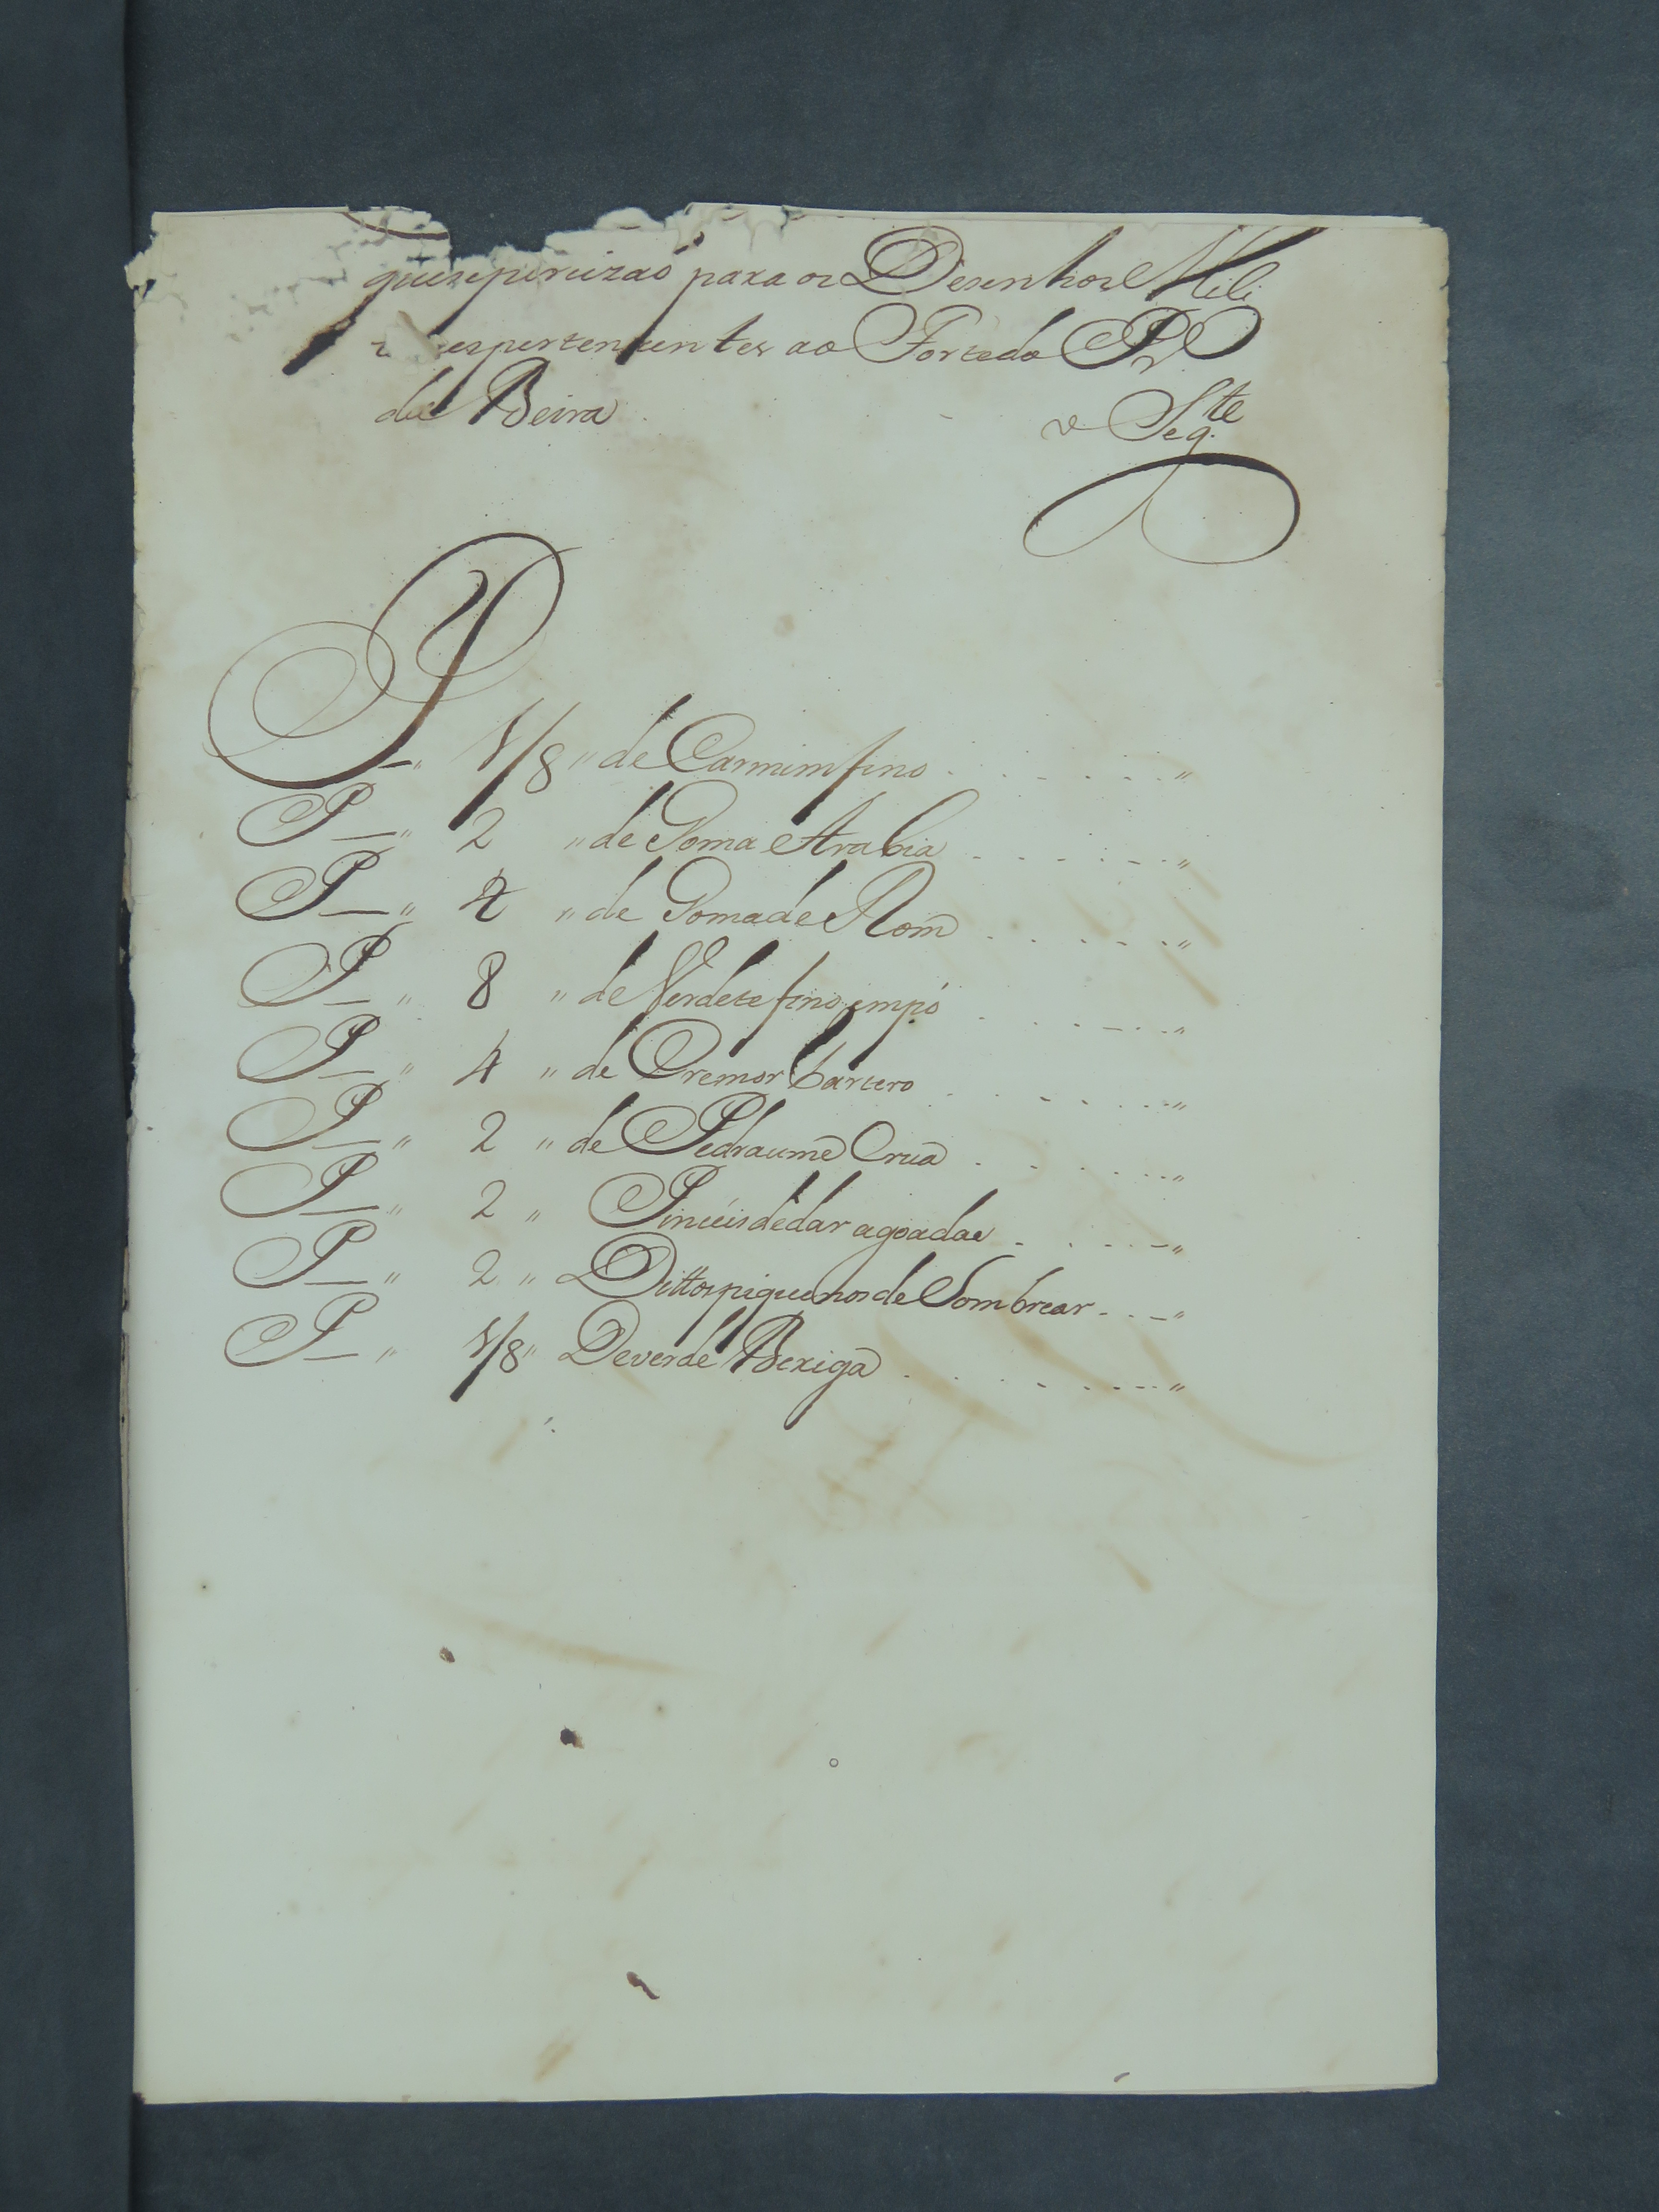 que se percizaõ para os Desenhos Mili
res pertencentes ao Forte do P.
da Beira
o Seg.te
P " 1/8 " de Carmim fino "
P " 2 " de Goma Arabia "
P " 4 " de Goma de Rom "
P " 8 " de Verdete fino em pó "
P " 4 " de Cremor tartero "
P " 2 " de Pedraume Crua "
P " 2 " Pinceis de dar agoadas "
P " 2 " Dittos piquenos de Sombrear "
P " 1/8 " De verde Bexiga "